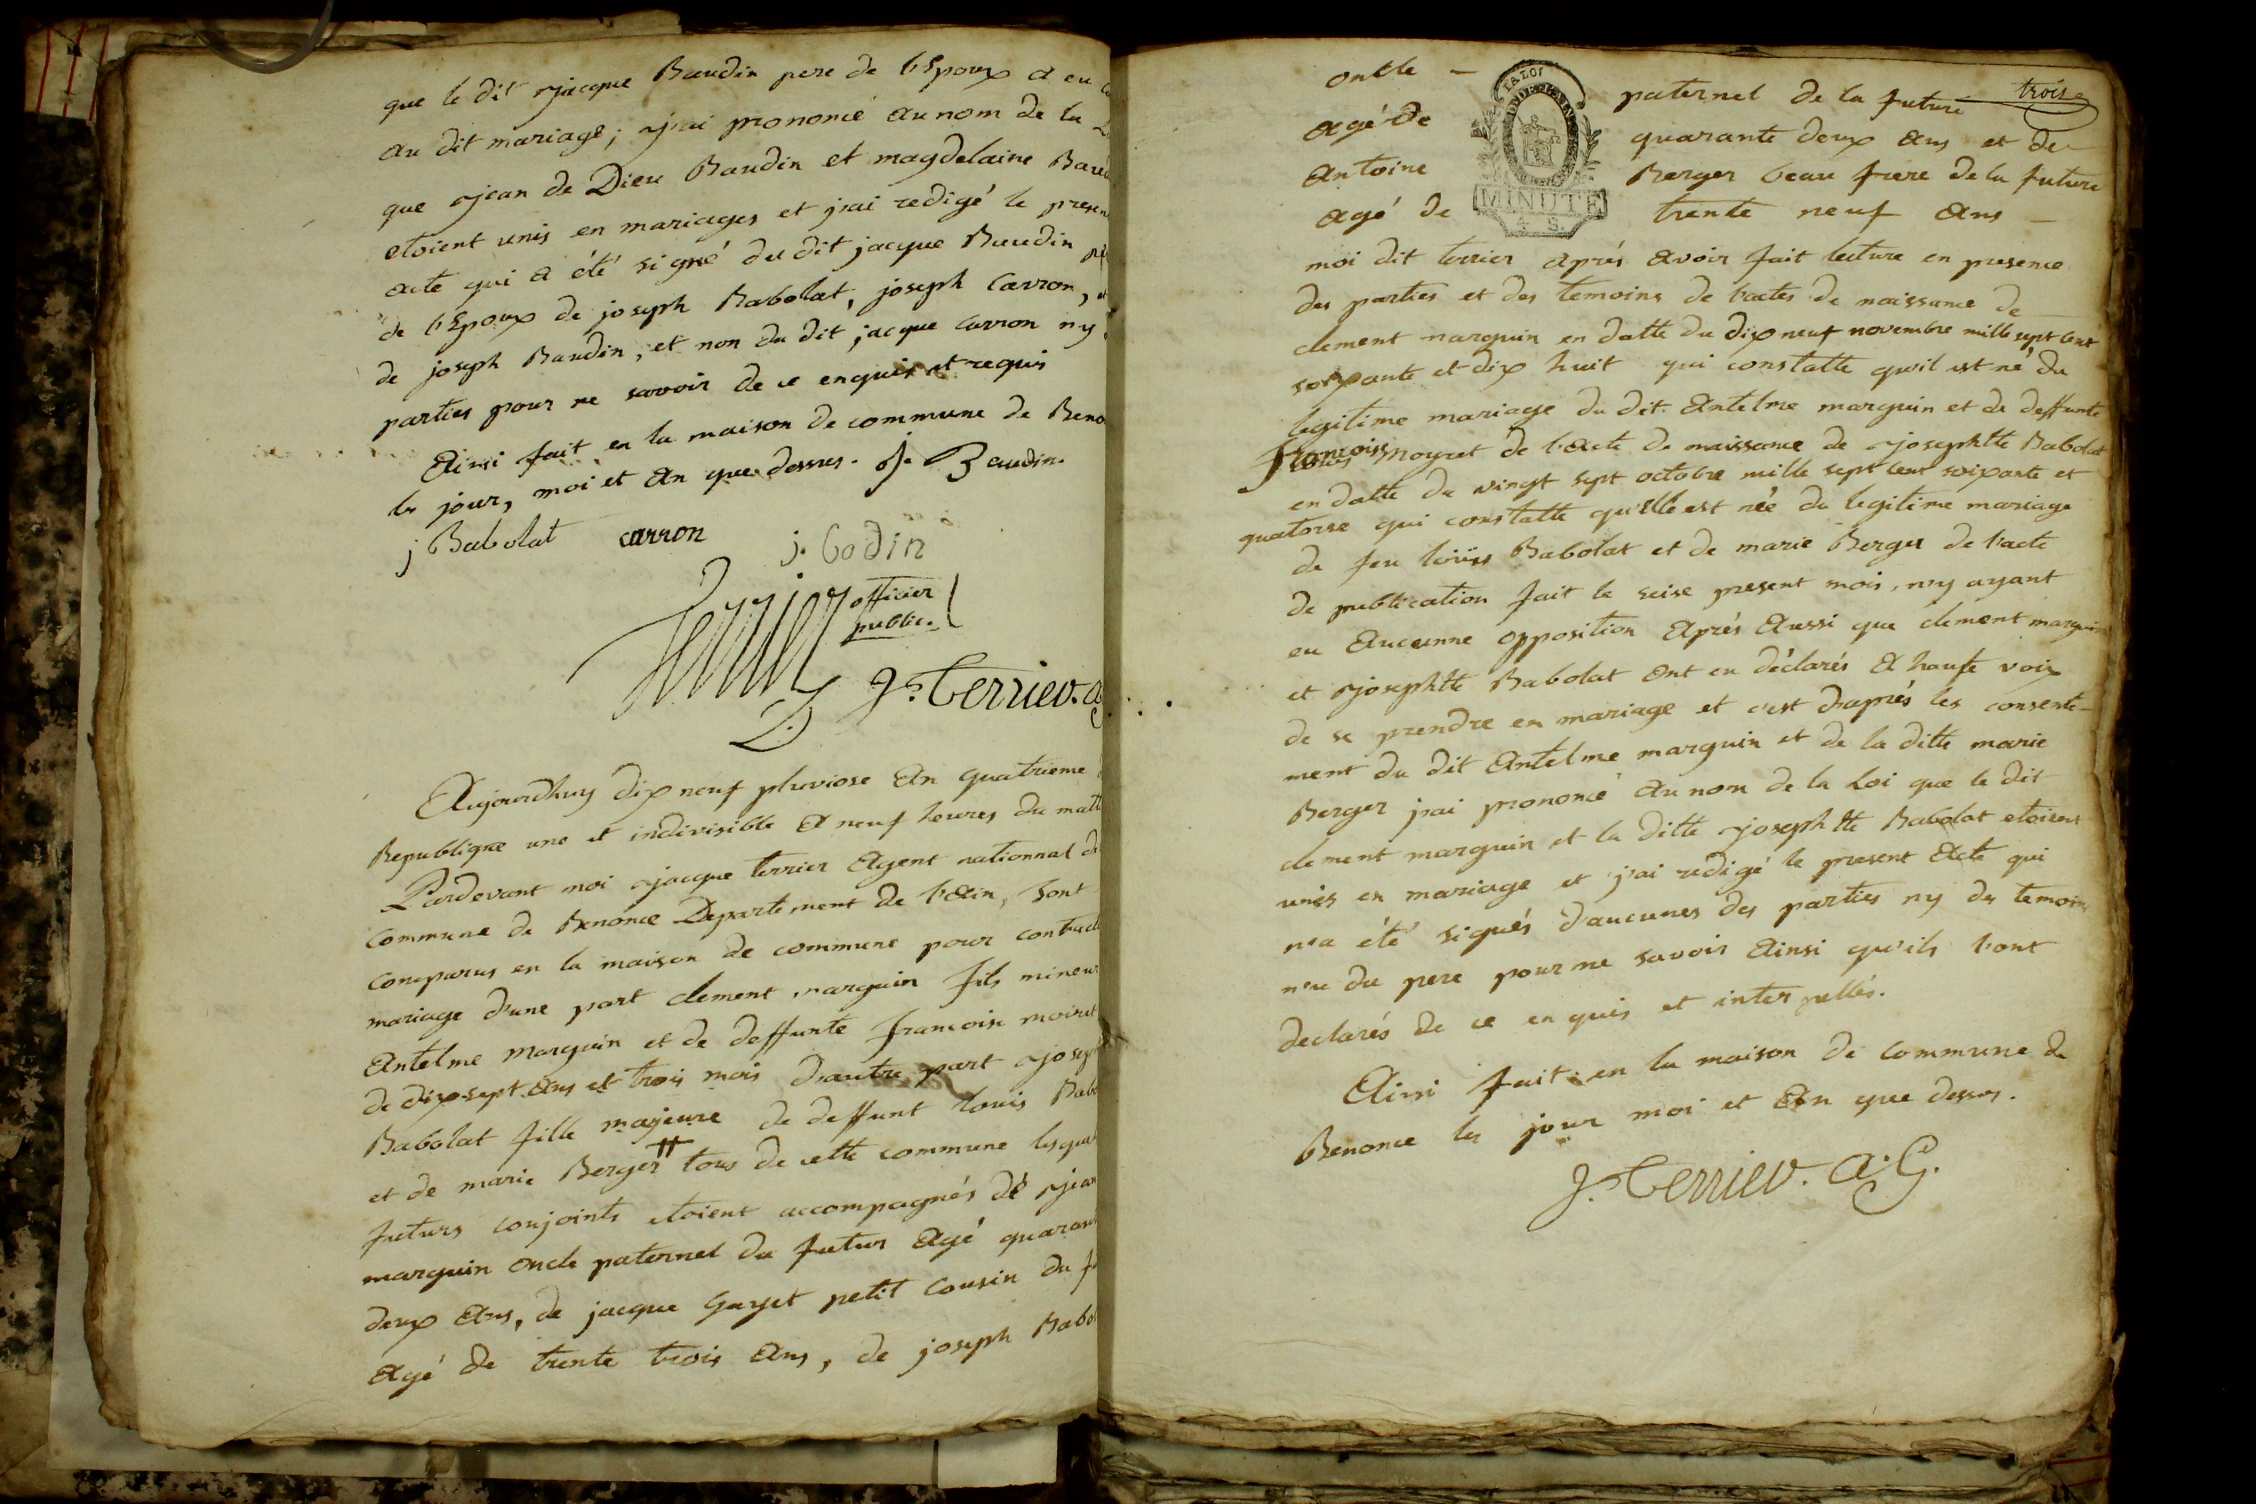 que le dit jacque Baudin pere de l'Epoux a eu
au dit mariage; j'ai prononcé au nom de la
que jean de Dieu Baudin et magdelaine
etoient unis en mariages et j'ai redigé le
acte qui a été signé du dit jacque Baudin
de l'Epoux de joseph Babolat, joseph Carron,
de joseph Baudin, et non du dit jacque Carron ny
parties pour ne savoir de ce enquis et requis
Ainsi fait en la maison de commune de
les jour, moi et an que dessus. J. Baudin
j Babolat carron j. Bodin
Terrier officier
public.
J. Terrier.
Aujourdhuy dix neuf pluviose an quatrieme
Republique une et indivisible a neuf heures du
Pardevant moi jacque terrier Agent nationnal
commune de Benonce Departement de l'ain, sont
comparus en la maison de commune pour
mariage d'une part clement marguin fils mineur
Antelme marguin et de deffunte francoise moiret
de dix sept ans et trois mois d'autre part
Babolat fille majeure de deffunt louis
et de marie Berger # tous de cette commune
futurs conjoints etoient accompagnés de jean
marguin oncle paternel du futur Agé
deux ans, de jacque Gayet petit cousin du
Agé de trente trois ans, de joseph
trois
oncle paternel de la future
agé de quarante deux ans et de
Antoine Berger beau frere de la future
agé de trente neuf ans
LA LOI
MINUTE
4 S.
moi dit terrier après avoir fait lecture en presence
des parties et des temoins de l'actes de naissance de
clement marguin en datte du dix neuf novembre mille sept cent
soixante et dix huit qui constatte qu'il est né du
legitime mariage du dit Antelme marguin et de deffunte
francoise Moyret de l'acte de naissance de josephtte Babolat
en datte du vingt sept octobre mille sept cent soixante et
quatorse qui constatte qu'elle est née du legitime mariage
de feu loüis Babolat et de marie Berger de l'acte
de publication fait le seise present mois, n'y ayant
eu Aucunne opposition Après Aussi que clement marguin
et josephtte Babolat ont eu déclarés A haute voix
de se prendre en mariage et c'est d'après les consente-
ment du dit Antelme marguin et de la ditte marie
Berger j'ai prononcé au nom de la Loi que le dit
clement marguin et la ditte josephtte Babolat etoient
unis en mariage et j'ai redigé le present Acte qui
n'a été signés d'aucunes des parties ny des temoins
n'y du pere pour ne savoir Ainsi qu'ils l'ont
declarés de ce enquis et interpellés.
Ainsi fait en la maison de commune de
Benonce les jour moi et An que dessus.
J. Terrier. A. G.